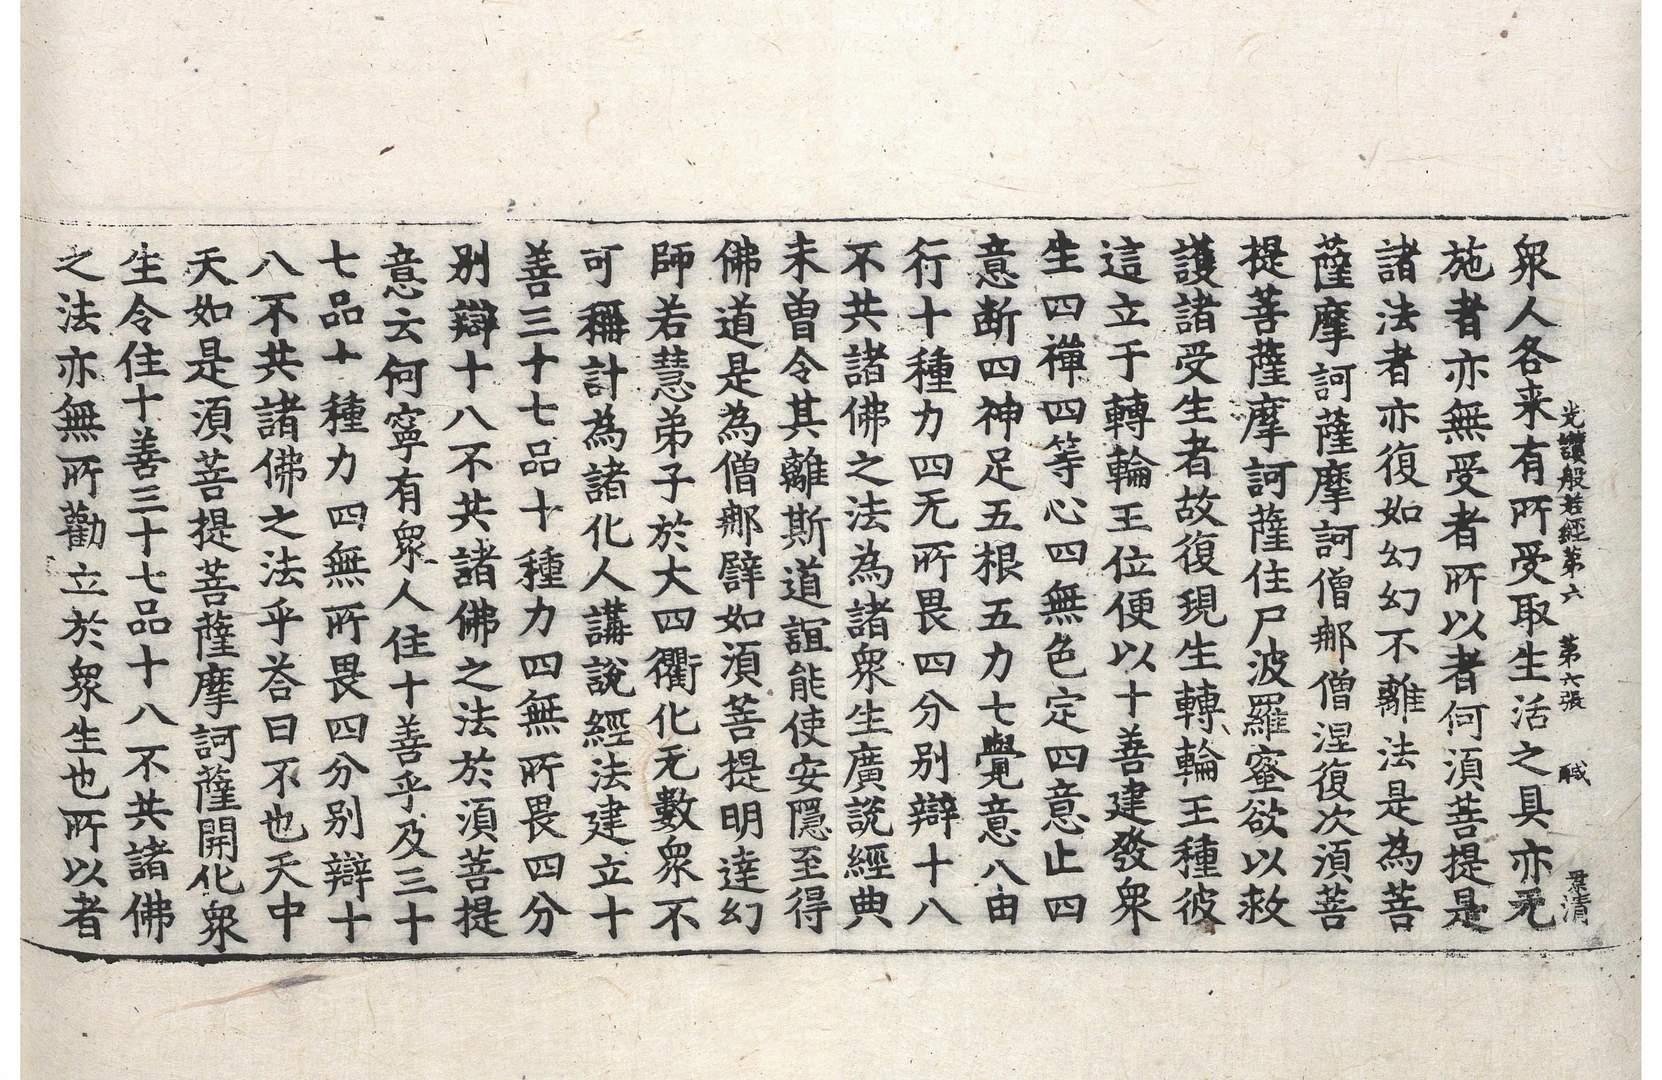 光讃般若經第六 第六張 戫 景清
衆人各来有所受取生活之具亦无
施者亦無受者所以者何湏菩提是
諸法者亦復如幻幻不離法是為菩
薩摩訶薩摩訶僧那僧涅復次湏菩
提菩薩摩訶薩住尸波羅蜜欲以救
護諸受生者故復現生轉輪王種彼
這立于轉輪王位便以十善建發衆
生四禪四等心四無色定四意止四
意斷四神足五根五力七覺意八由
行十種力四无所畏四分別辯十八
不共諸佛之法為諸衆生廣說經典
未曾令其離斯道誼能使安隱至得
佛道是為僧那譬如湏菩提明達幻
師若慧弟子於大四衢化无數衆不
可稱計為諸化人講說經法建立十
善三十七品十種力四無所畏四分
別辯十八不共諸佛之法於湏菩提
意云何寧有衆人住十善乎及三十
七品十種力四無所畏四分別辯十
八不共諸佛之法乎荅曰不也天中
天如是湏菩提菩薩摩訶薩開化衆
生令住十善三十七品十八不共諸佛
之法亦無所勸立於衆生也所以者